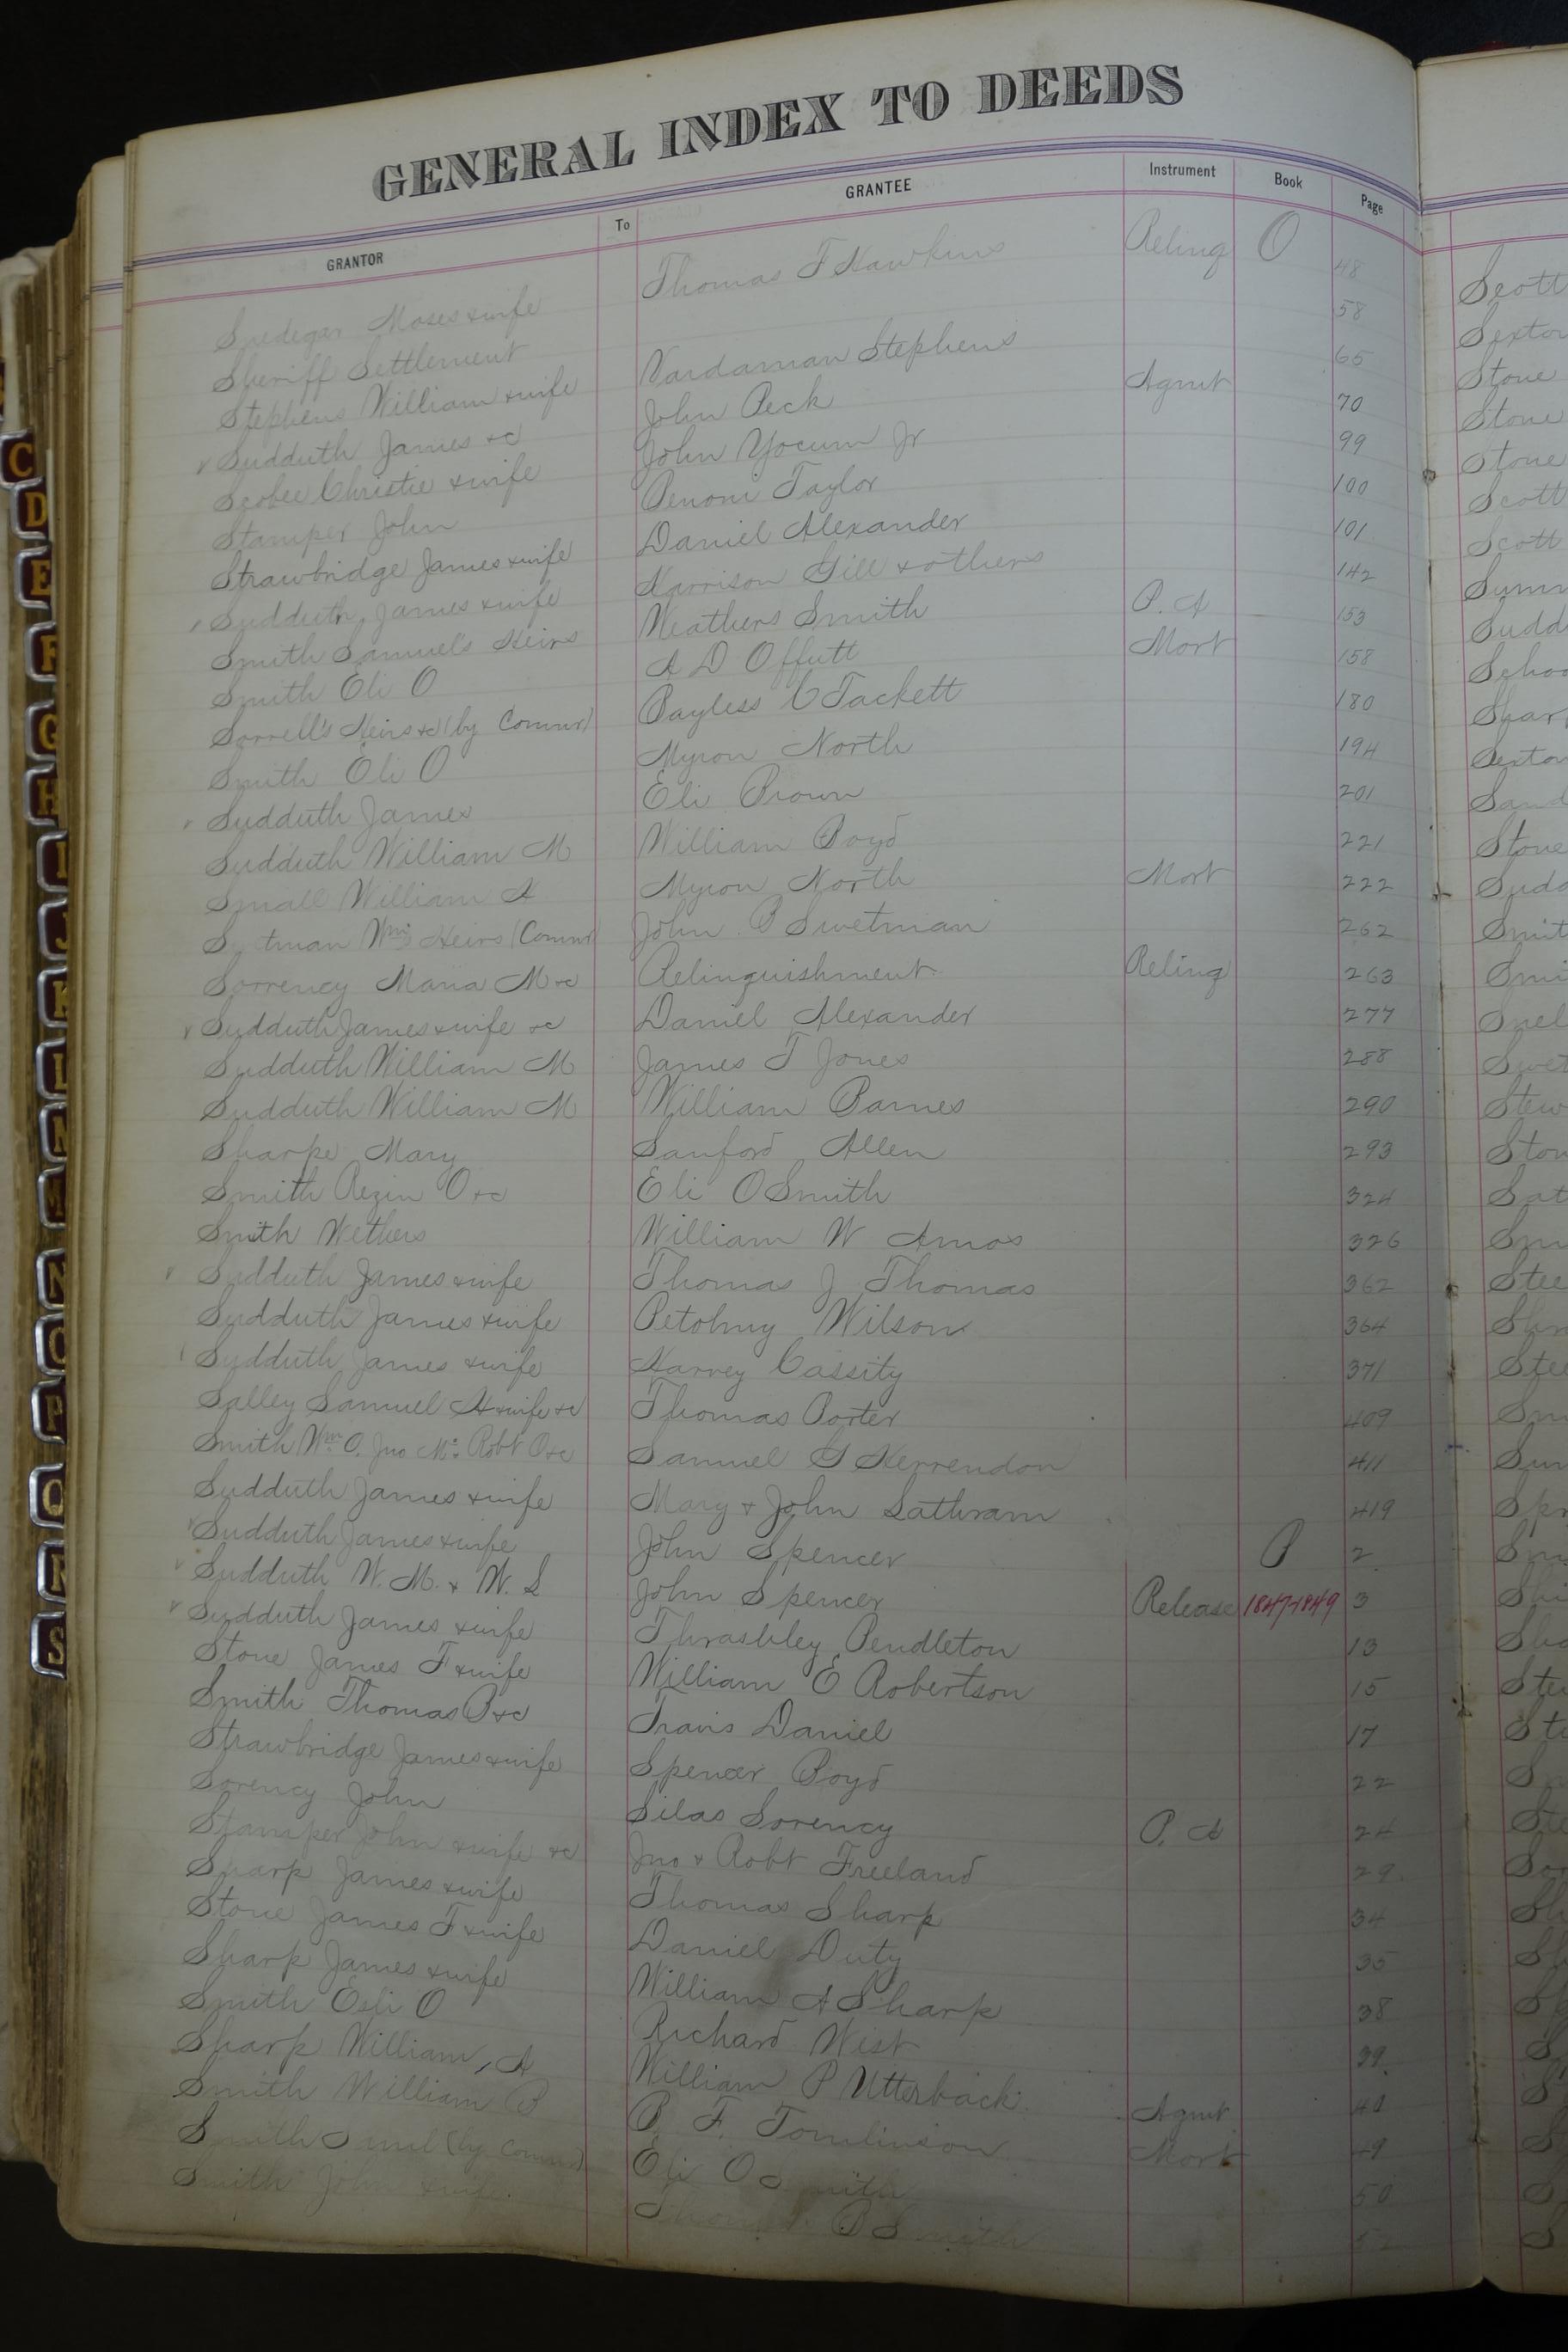 GENERAL INDEX TO DEEDS
GRANTOR To GRANTEE Instrument Book Page
Snedegar Moses & wife Thomas F Hawkins Relinq O 48
Sheriff Settlement 58
Stephens William & wife Vardaman Stephens 65
Sudduth James &c John Peck Agmt 70
Scobee Christie & wife John Yocum Jr 99
Stamper John Benoni Taylor 100
Strawbridge James & wife Daniel Alexander 101
Sudduth James & wife Harrison Gill & others 142
Smith Samuel's Heirs Weathers Smith P. A 153
Smith Eli O A D Offutt Mort 158
Sorrell's Heirs &c (by Commr) Bayless C Tackett 180
Smith Eli O Myron North 194
Sudduth James Eli Brown 201
Sudduth William M William Boyd 221
Small William H Myron North Mort 222
Wms Heirs (Commr) John B Swetman 262
Sorrency Maria M &c Relinquishment Relinq 263
Sudduth James & wife &c Daniel Alexander 277
Sudduth William M James T Jones 288
Sudduth William M William Barnes 290
Sharpe Mary Sanford Allen 293
Smith Rezin O &c Eli O Smith 324
Smith Wethers William W Amos 326
Sudduth James & wife Thomas J Thomas 362
Sudduth James & wife Petolmy Wilson 364
Sudduth James & wife Harvey Cassity 371
Salley Samuel H & wife &c Thomas Porter 409
Smith Wm O. Jno M. Robt O &c Samuel G Herrendon 411
Sudduth James & wife Mary & John Lathram 419
Sudduth James & wife John Spencer P 2
Sudduth W. M. & W. L John Spencer Release 1847-1849 3
Sudduth James & wife Thrashley Pendleton 13
Stone James F & wife William E Robertson 15
Smith Thomas B &c Travis Daniel 17
Strawbridge James & wife Spencer Boyd 22
Sorency John Silas Sorency P. A 24
Stamper John & wife &c Jno & Robt Freeland 29.
Sharp James & wife Thomas Sharp 34
Stone James F & wife Daniel Duty 35
Sharp James & wife William A Sharp 38
Smith Eli O Richard West 39.
Sharp William, A William P Utterback Agmt
Smith William B B. F. Tomlinson Mort 49
Smith (by Commr) Eli O Smith 50
Smith John & wife. B Smith 52
Scott
Sexton
Stone
Stone
Stone
Scott
Scott
C
D
E
F
G
H
I
J
K
L
M
N
O
P
Q
R
S